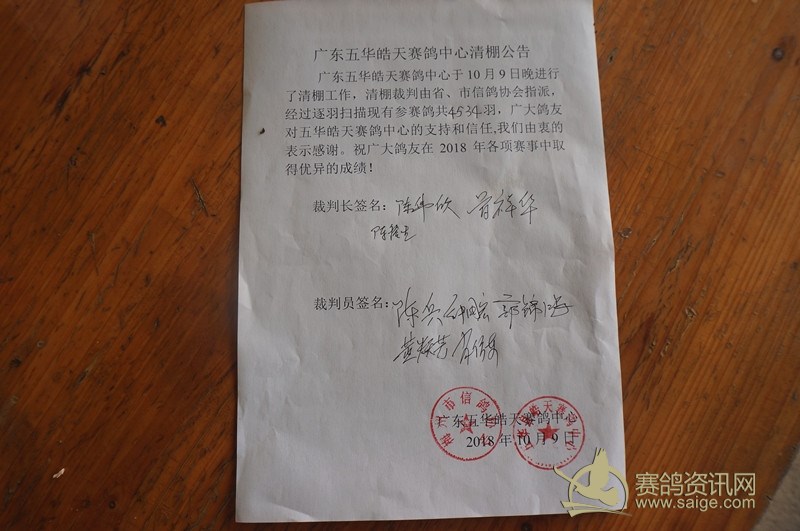 广东五华皓天赛鸽中心清棚公告
广东五华皓天赛鸽中心于10月9日晚进行
了清棚工作，清棚裁判由省、市信鸽协会指派，
经过逐羽扫描现有参赛鸽共4534羽，广大鸽友
对五华皓天赛鸽中心的支持和信任,我们由衷的
表示感谢。祝广大鸽友在2018年各项赛事中取
得优异的成绩！
裁判长签名：
裁判员签名：陈兵 郭锦海
广东五华皓天赛鸽中心
2018年10月9日
赛鸽资讯网
www.saige.com